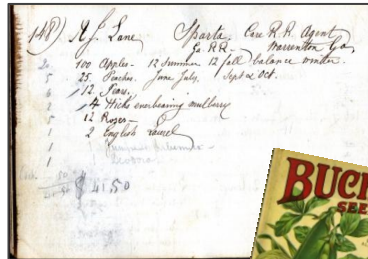 148) A. J. Lane Sparta, Care R.R. Agent
Ga R.R. - Warrenton Ga,
2 100 Apples - 12 Summer 12 fall balance winter.
5 25 Peaches June July, Sept & Oct.
6 12 Pears
2 4 Hicks everbearing mulberry
5 12 Roses -
1 2 English Laurel
1 1
1
50
$ 41.50
BUCK
SEE